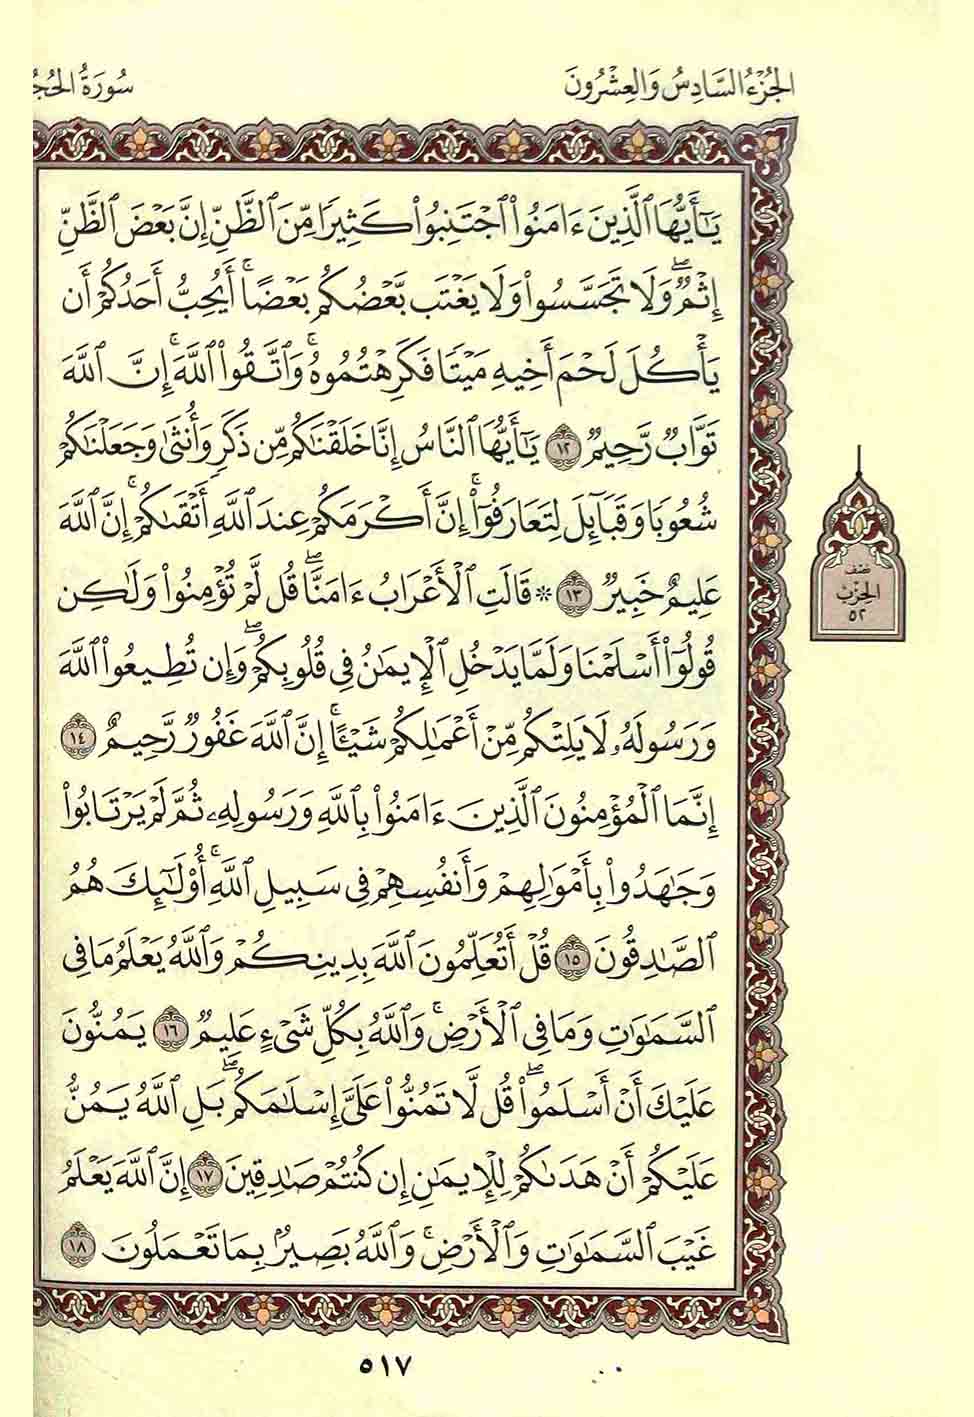 الجُزْءُ السَّادِسُ وَالعِشْرُونَ
سُورَةُ الحُجُ
يَـٰٓأَيُّهَا ٱلَّذِينَ ءَامَنُوا۟ ٱجْتَنِبُوا۟ كَثِيرًا مِّنَ ٱلظَّنِّ إِنَّ بَعْضَ ٱلظَّنِّ
إِثْمٌ ۖ وَلَا تَجَسَّسُوا۟ وَلَا يَغْتَب بَّعْضُكُم بَعْضًا ۚ أَيُحِبُّ أَحَدُكُمْ أَن
يَأْكُلَ لَحْمَ أَخِيهِ مَيْتًا فَكَرِهْتُمُوهُ ۚ وَٱتَّقُوا۟ ٱللَّهَ ۚ إِنَّ ٱللَّهَ
تَوَّابٌ رَّحِيمٌ ١٢ يَـٰٓأَيُّهَا ٱلنَّاسُ إِنَّا خَلَقْنَـٰكُم مِّن ذَكَرٍ وَأُنثَىٰ وَجَعَلْنَـٰكُمْ
شُعُوبًا وَقَبَآئِلَ لِتَعَارَفُوٓا۟ ۚ إِنَّ أَكْرَمَكُمْ عِندَ ٱللَّهِ أَتْقَىٰكُمْ ۚ إِنَّ ٱللَّهَ
عَلِيمٌ خَبِيرٌ ١٣ ۞ قَالَتِ ٱلْأَعْرَابُ ءَامَنَّا ۖ قُل لَّمْ تُؤْمِنُوا۟ وَلَـٰكِن
قُولُوٓا۟ أَسْلَمْنَا وَلَمَّا يَدْخُلِ ٱلْإِيمَـٰنُ فِى قُلُوبِكُمْ ۖ وَإِن تُطِيعُوا۟ ٱللَّهَ
وَرَسُولَهُۥ لَا يَلِتْكُم مِّنْ أَعْمَـٰلِكُمْ شَيْـًٔا ۚ إِنَّ ٱللَّهَ غَفُورٌ رَّحِيمٌ ١٤
إِنَّمَا ٱلْمُؤْمِنُونَ ٱلَّذِينَ ءَامَنُوا۟ بِٱللَّهِ وَرَسُولِهِۦ ثُمَّ لَمْ يَرْتَابُوا۟
وَجَـٰهَدُوا۟ بِأَمْوَٰلِهِمْ وَأَنفُسِهِمْ فِى سَبِيلِ ٱللَّهِ ۚ أُو۟لَـٰٓئِكَ هُمُ
ٱلصَّـٰدِقُونَ ١٥ قُلْ أَتُعَلِّمُونَ ٱللَّهَ بِدِينِكُمْ وَٱللَّهُ يَعْلَمُ مَا فِى
ٱلسَّمَـٰوَٰتِ وَمَا فِى ٱلْأَرْضِ ۚ وَٱللَّهُ بِكُلِّ شَىْءٍ عَلِيمٌ ١٦ يَمُنُّونَ
عَلَيْكَ أَنْ أَسْلَمُوا۟ ۖ قُل لَّا تَمُنُّوا۟ عَلَىَّ إِسْلَـٰمَكُم ۖ بَلِ ٱللَّهُ يَمُنُّ
عَلَيْكُمْ أَنْ هَدَىٰكُمْ لِلْإِيمَـٰنِ إِن كُنتُمْ صَـٰدِقِينَ ١٧ إِنَّ ٱللَّهَ يَعْلَمُ
غَيْبَ ٱلسَّمَـٰوَٰتِ وَٱلْأَرْضِ ۚ وَٱللَّهُ بَصِيرٌۢ بِمَا تَعْمَلُونَ ١٨
نصف
الحِزْب
٥٢
٥١٧